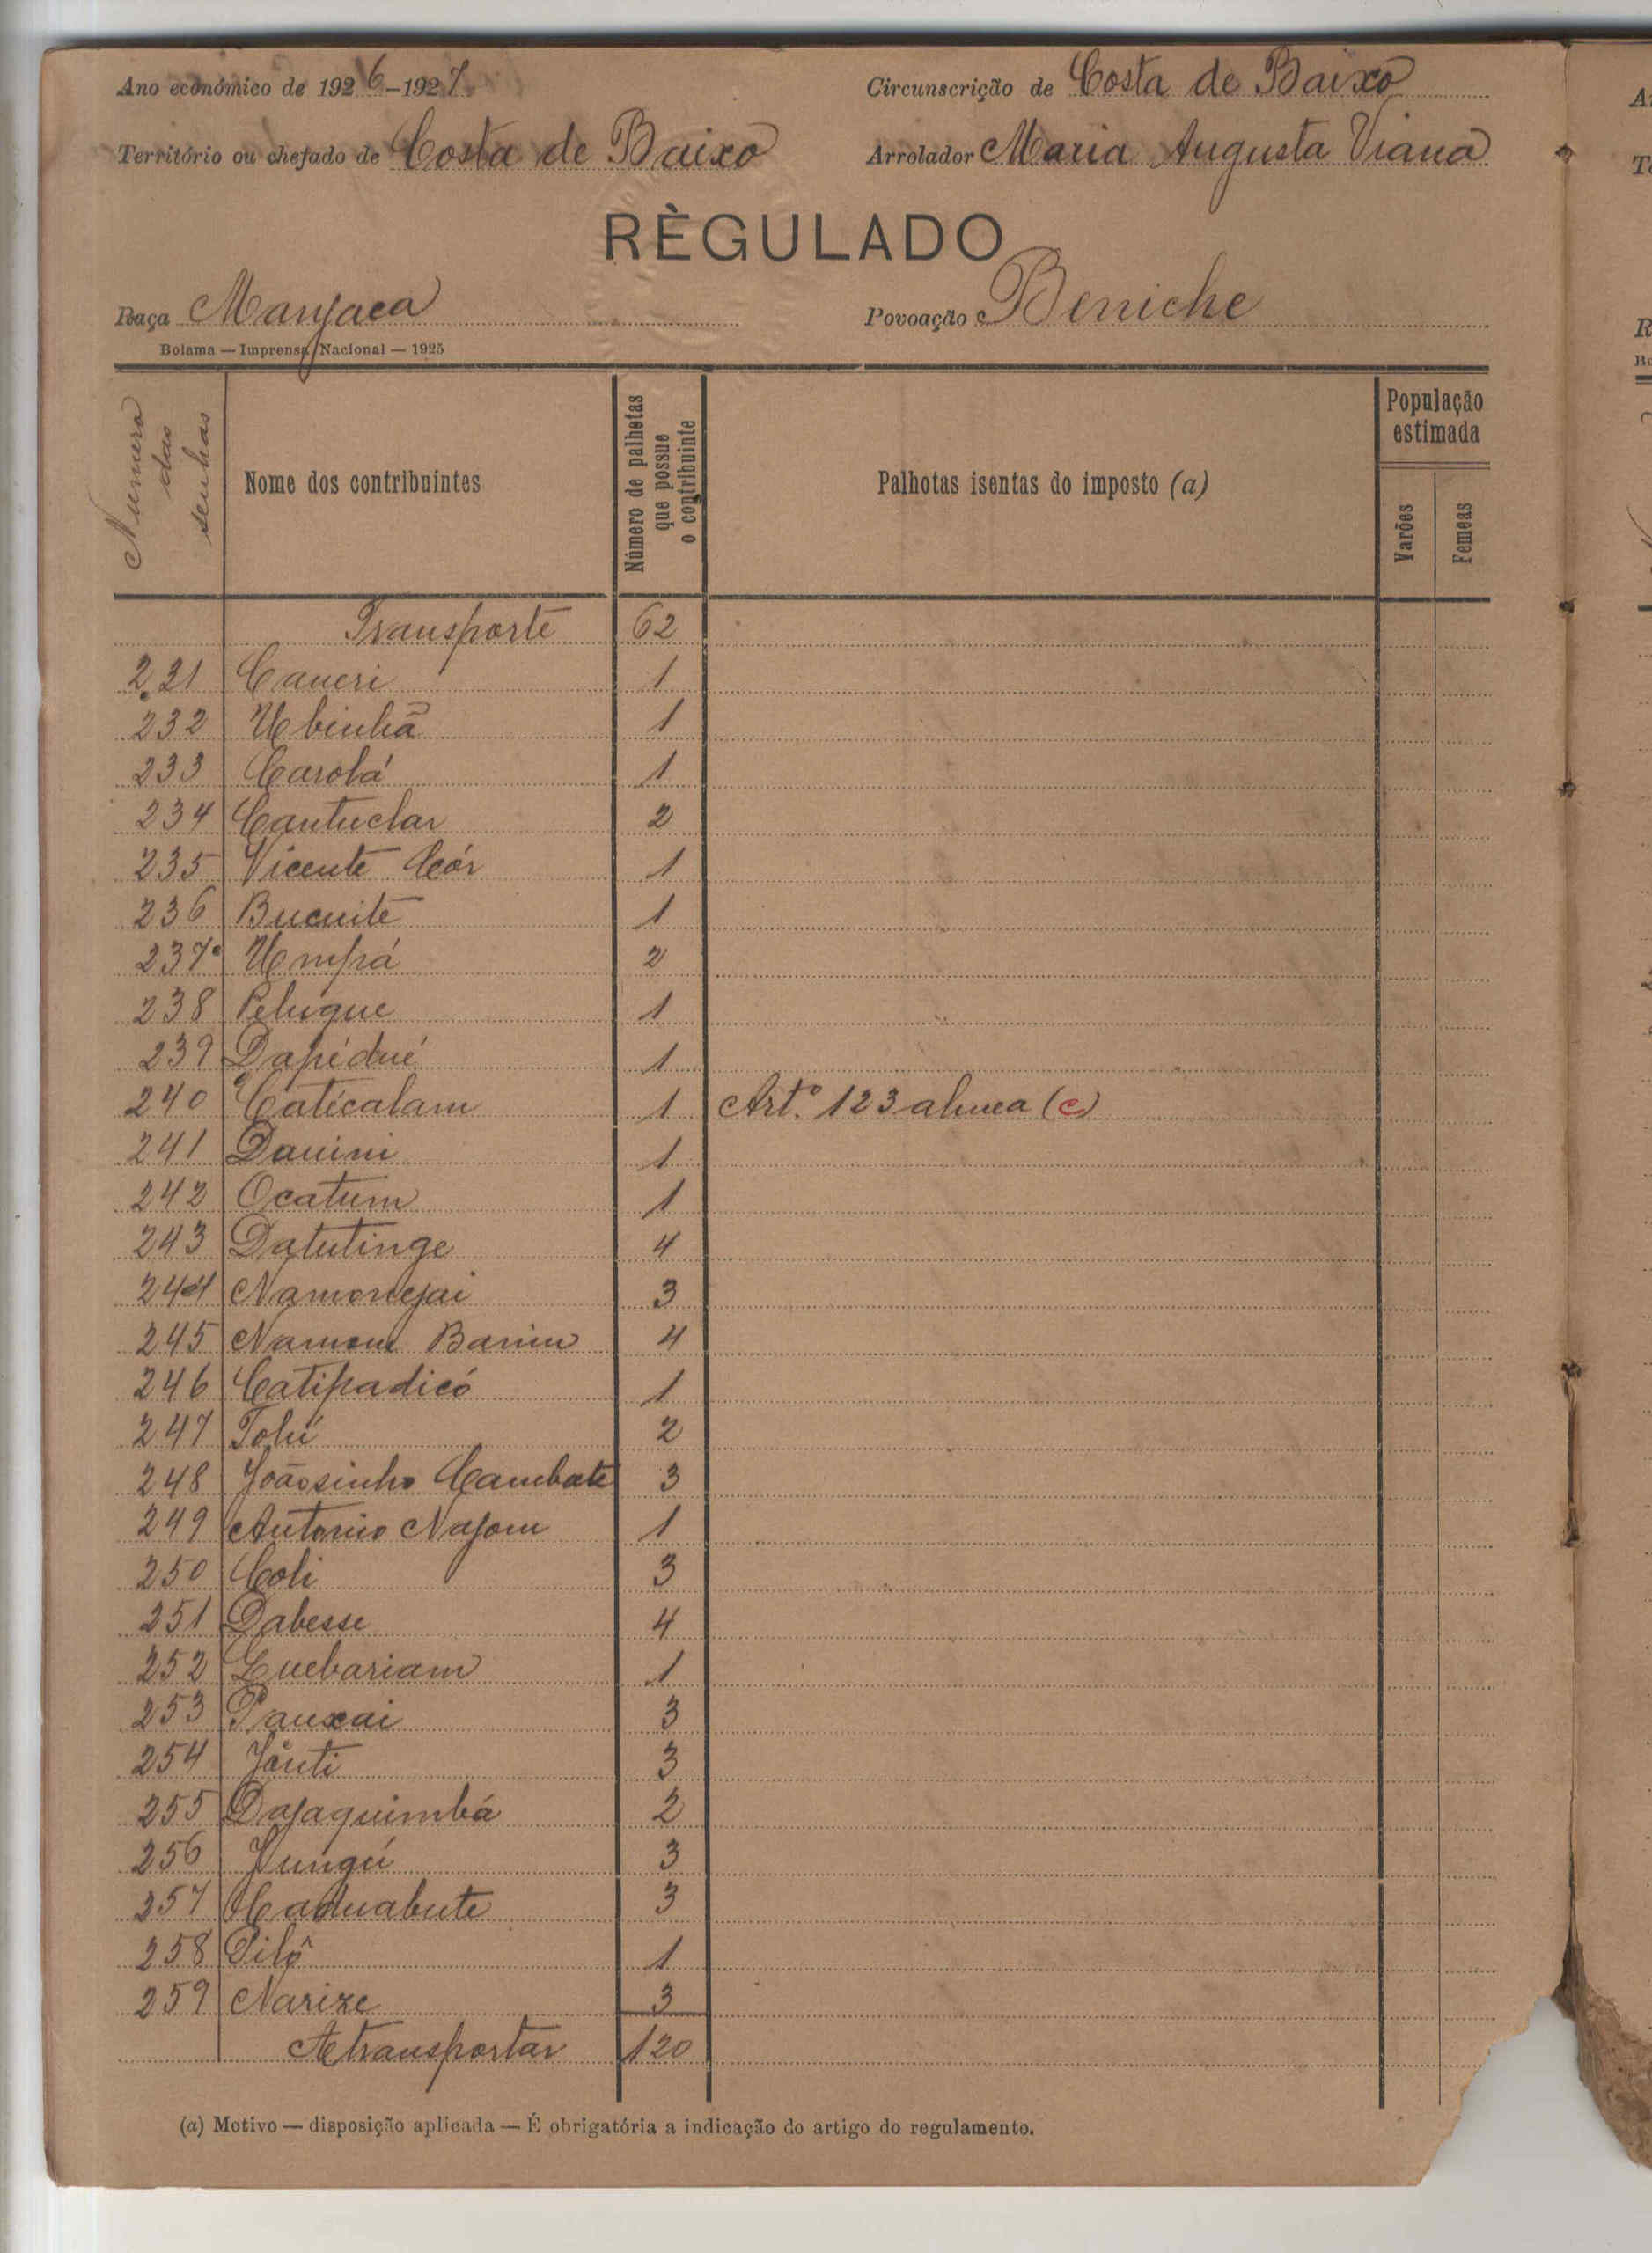 Ano económico de 1926-1927. Circunscrição de Costa de Baixo
Território ou chefado de Costa de Baixo Arrolador Maria Augusta Viana
RÈGULADO
Raça Manjaca Povoação Beniche
Bolama — Imprensa Nacional — 1925
Numero das senhas
Nome dos contribuintes
Número de palhetas que possue o contribuinte
Palhotas isentas do imposto (a)
População estimada
Varões
Femeas
Transporte 62
231 Caueri 1
232 Ubinhã 1
233 Carobá 1
234 Cantuclar 2
235 Vicente Cór 1
236 Bucuite 1
237 Umpá 2
238 Pelugue 1
239 Dapédué 1
240 Caticalam 1 Art.º 123 alinea (c)
241 Danini 1
242 Ocatum 1
243 Datutinge 4
244 Namonejai 3
245 Namone Banim 4
246 Catipadicó 1
247 Tolú 2
248 Joãosinho Cambate 3
249 Antonio Najom 1
250 Coli 3
251 Dabesse 4
252 Luebariam 1
253 Pauxai 3
254 Jánti 3
255 Dajaquimbá 2
256 Jungú 3
257 Caduabute 3
258 Pilô 1
259 Narize 3
A transportar 120
(a) Motivo — disposição aplicada — É obrigatória a indicação do artigo do regulamento.